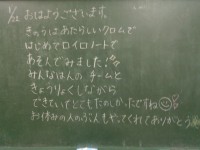 1/22 おはようございます。
きのうはあたらしいクロムで
はじめてロイロノートで
あそんでみました!!
みんなはんの チームと
きょうりょくしながら
できていてとてもたのしかったですね
お休みの人のぶんもやってくれてありがとう